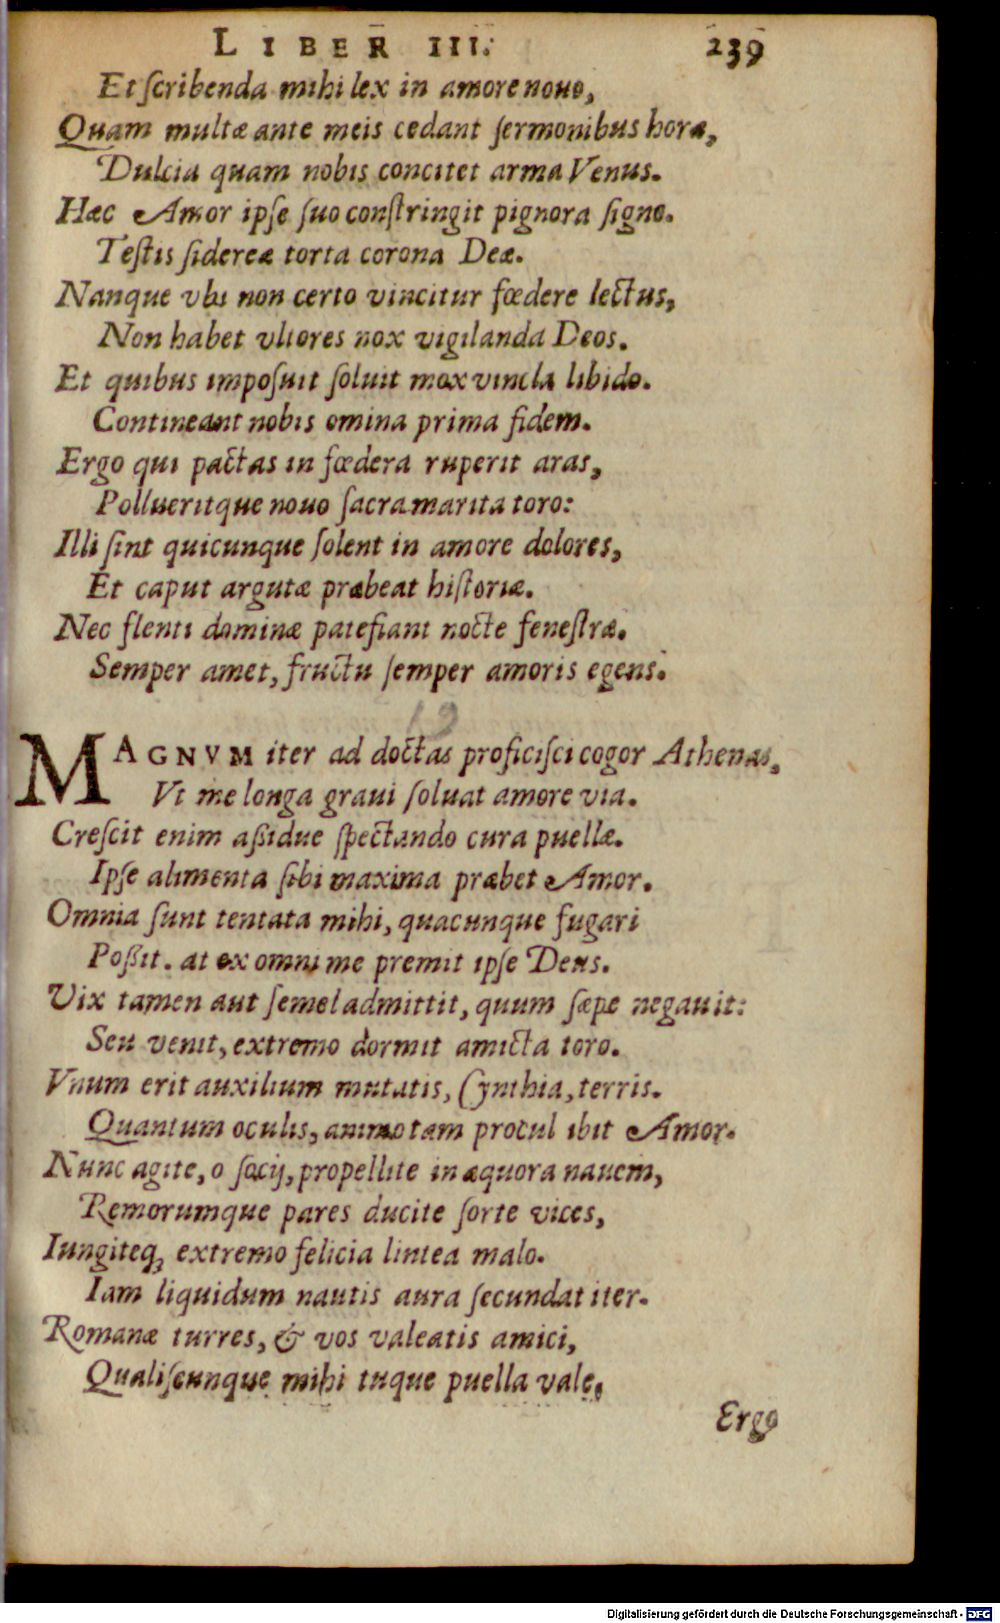 LIBER III. 239
Et ſcribenda mihi lex in amore nouo,
Quam multæ ante meis cedant ſermonibus horæ,
Dulcia quam nobis concitet arma Venus.
Hæc Amor ipſe ſuo conſtringit pignora ſigno.
Teſtis ſidereæ torta corona Deæ.
Nanque vbi non certo vincitur fœdere lectus,
Non habet vltores nox vigilanda Deos.
Et quibus impoſuit ſoluit mox vincla libido.
Contineant nobis omina prima fidem.
Ergo qui pactas in fœdera ruperit aras,
Polluerítque nouo ſacra marita toro:
Illi ſint quicunque ſolent in amore dolores,
Et caput argutæ præbeat hiſtoriæ.
Nec flenti dominæ patefiant nocte feneſtræ.
Semper amet, fructu ſemper amoris egens.
19
MAGNVM iter ad doctas proficiſci cogor Athenas,
Vt me longa graui ſoluat amore via.
Creſcit enim aßidue ſpectando cura puellæ.
Ipſe alimenta ſibi maxima præbet Amor.
Omnia ſunt tentata mihi, quacunque fugari
Poßit. at ex omni me premit ipſe Deus.
Vix tamen aut ſemel admittit, quum ſæpe negauit:
Seu venit, extremo dormit amicta toro.
Vnum erit auxilium mutatis, Cynthia, terris.
Quantum oculis, animo tam procul ibit Amor.
Nunc agite, o ſocij, propellite in æquora nauem,
Remorumque pares ducite ſorte vices,
Iungiteq; extremo felicia lintea malo.
Iam liquidum nautis aura ſecundat iter.
Romanæ turres, & vos valeatis amici,
Qualiſcunque mihi tuque puella vale,
Ergo
Digitalisierung gefördert durch die Deutsche Forschungsgemeinschaft - DFG